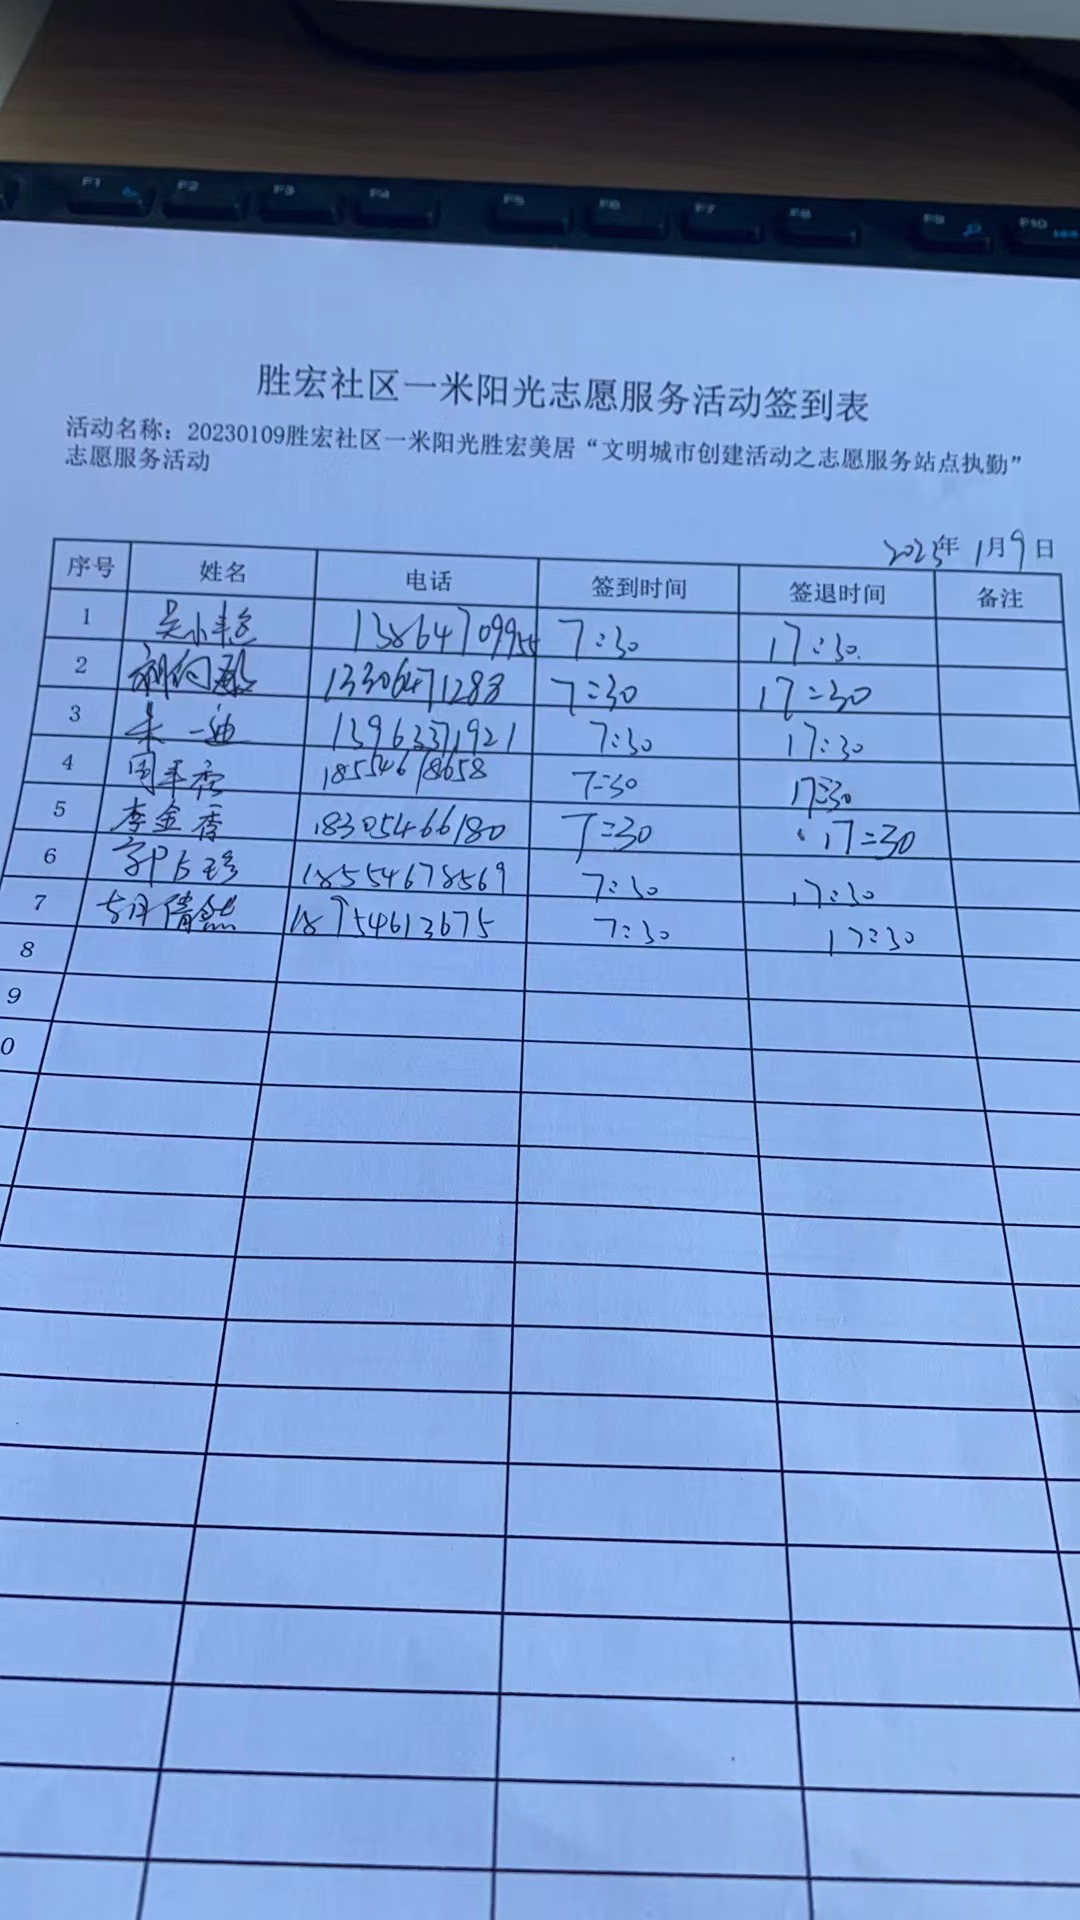 F1 F2 F3 F4 F5 F6 F7 F8 F9 F10
胜宏社区一米阳光志愿服务活动签到表
活动名称：20230109胜宏社区一米阳光胜宏美居“文明城市创建活动之志愿服务站点执勤”
志愿服务活动
2023年 1月9日
序号 姓名 电话 签到时间 签退时间 备注
1 吴小 138647099 7:30 17:30
2 13306471283 7:30 17:30
3 朱一迪 13963371921 7:30 17:30
4 周平香 18554678658 7:30 17:30
5 李金香 18305466180 7:30 17:30
6 18554678569 7:30 17:30
7 倩 18754613675 7:30 17:30
8
9
0